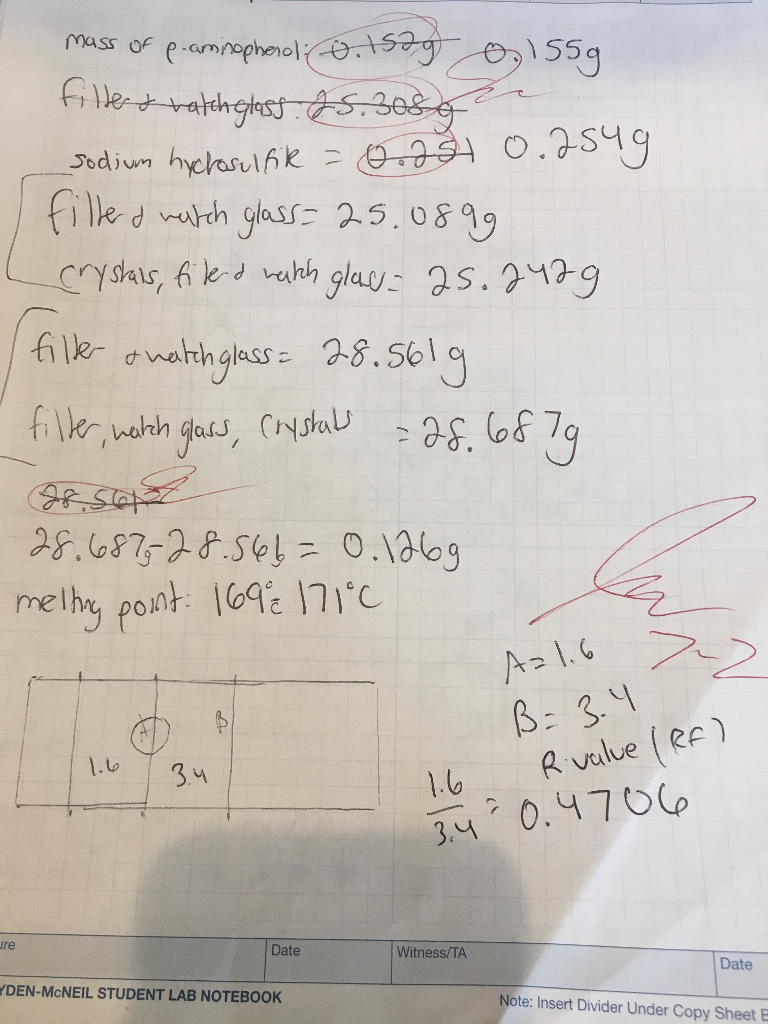 mass of p-aminophenol: 0.152g 0.155g
filter & watchglass: 25.308g
sodium hydrosulfite = 0.251 0.254g
filter & watch glass = 25.089g
crystals, filter & watch glass = 25.242g
filter & watchglass = 28.561g
filter, watch glass, crystals = 28.687g
28.561
28.687g-28.561g = 0.126g
melting point: 169°C 171°C
A = 1.6
7-2
B = 3.4
R value (RF)
A B
1.6 3.4
1.6/3.4 = 0.4706
ure Date Witness/TA Date
YDEN-MCNEIL STUDENT LAB NOTEBOOK
Note: Insert Divider Under Copy Sheet B